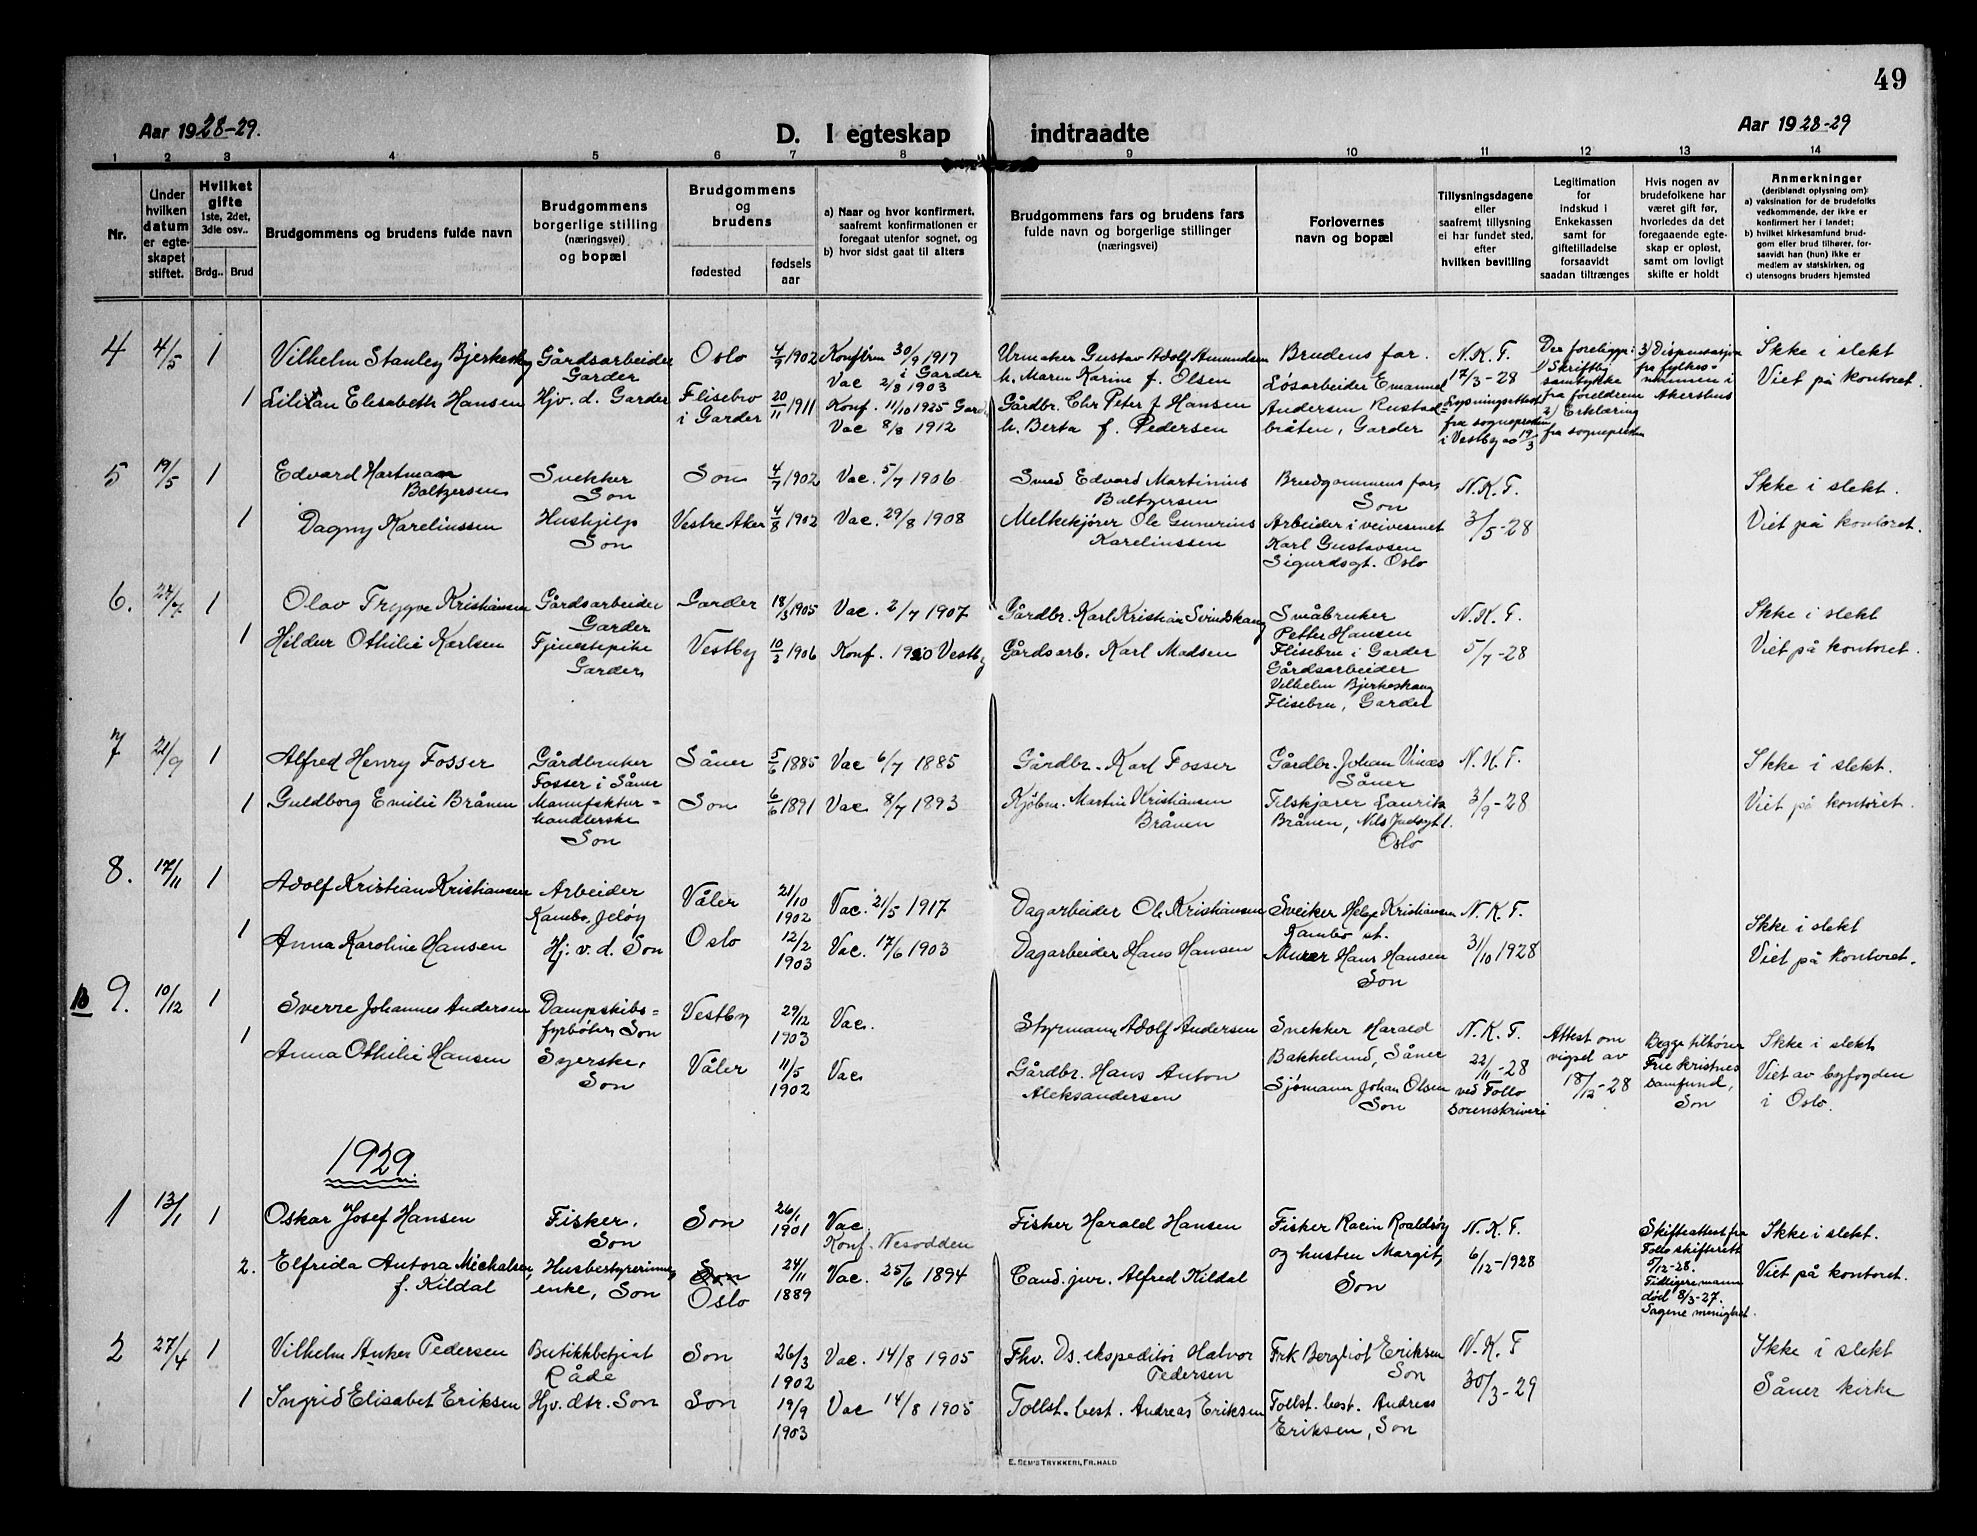 49
Aar 1928-29.
D. I egteskap indtraadte
Aar 1928-29
1 2 3 4 5 6 7 8 9 10 11 12 13 14
Nr.
Under hvilken datum er egteskapet stiftet.
Hvilket gifte 1ste, 2det, 3dle osv..
Brdg.. Brud
Brudgommens og brudens fulde navn
Brudgommens borgerlige stilling (næringsvei) og bopæl
Brudgommens og brudens
fødested
fødsels aar
a) Naar og hvor konfirmert, saafremt konfirmationen er foregaat utenfor sognet, og
b) hvor sidst gaat til alters
Brudgommens fars og brudens fars fulde navn og borgerlige stillinger (næringsvei)
Forlovernes navn og bopæl
Tillysningsdagene eller saafremt tillysning ei har fundet sted, efter hvilken bevilling
Legitimation for Indskud i Enkekassen samt for giftetilladelse forsaavidt saadan tiltrænges
Hvis nogen av brudefolkene har været gift før, hvorledes da det foregaaende egteskap er opløst, samt om lovligt skifte er holdt
Anmerkninger
(deriblandt oplysning om):
a) vaksination for de brudefolks vedkommende, der ikke er konfirmert her i landet;
b) hvilket kirkesamfund brudgom eller brud tilhører, forsaavidt han (hun) ikke er medlem av statskirken, og
c) utensogns bruders hjemsted
4 4/5 1 Vilhelm Stanley Bjerkeskog Gårdsarbeider Garder Oslo 4/9 1902 Konfirm 30/9 1917 i Garder Vac 2/8 1903
Urmaker Gustav Adolf Amundsen h. Maren Karine f. Olsen Brudens far. N.K.F. 17/3-28
Der foreligger: 1) Skriftlig samtykke fra foreldrene 2) Erklæring fra sognepresten
3) Dispensasjon fra fylkesmannen i Akershus
Ikke i slekt
1 Lilian Elisabeth Hansen Hjv. d. Garder Flisebro i Garder 20/11 1911 Konf. 11/10 1925 Gard. Vac 8/8 1912
Gårdbr. Chr Peter f Hansen h. Berta f. Pedersen Løsarbeider Emanuel Andersen Rustadbråten, Garder
Lysningsattest fra sognepresten i Vestby 19/3
Viet på kontoret.
5 19/5 1 Edvard Hartman Baltzersen Snekker Son Son 4/7 1902 Vac. 5/7 1906
Smed Edvard Martinius Baltzersen Brudgommens far, Son N.K.F. Ikke i slekt.
1 Dagny Karelinssen Hushjelp Son Vestre Aker 4/8 1902 Vac. 29/8 1908
Melkekjører Ole Gunerius Karelinssen Arbeider i veivesenet Karl Gustavsen Sigurdsgt. Oslo 3/5-28 Viet på kontoret.
6. 22/7 1 Olav Trygve Kristiansen Gårdsarbeider Garder Garder 18/3 1905 Vac. 2/7 1907
Gårdbr. Karl Kristian Svindskaug Småbruker Petter Hansen Flisebru i Garder N.K.F. Ikke i slekt
1 Hildur Othilie Karlsen Tjenestepike Garder Vestby 10/2 1906 Konf. 1920 Vestby
Gårdsarb. Karl Madsen Gårdsarbeider Vilhelm Bjerkeskaug Flisebru, Garder 5/7-28 Viet på kontoret.
7 21/9 1 Alfred Henry Fosser Gårdbruker Fosser i Såner Såner 5/6 1885 Vac 6/7 1885
Gårdbr. Karl Fosser Gårdbr. Johan Vinæs Såner N.K.F. Ikke i slekt.
1 Guldborg Emilie Brånen Manufakturhandlerske Son Son 6/6 1891 Vac 8/7 1893
Kjøbm. Martin Kristiansen Bråven Felskjærer Lauritz Bråven, Oslo 3/9-28 Viet på kontoret.
8. 17/11 1 Adolf Kristian Kristiansen Arbeider Kambo, Jeløy Våler 21/10 1902 Vac. 21/5 1917
Dagarbeider Ole Kristiansen Sveiker Helge Kristiansen Kambo st. N.K.F. Ikke i slekt
1 Anna Karoline Hansen Hj. v. d. Son Oslo 12/2 1903 Vac. 17/6 1903
Dagarbeider Hans Hansen Murer Hans Hansen Son 31/10 1928 Viet på kontoret.
B 9. 10/12 1 Sverre Johannes Andersen Dampskibsfyrbøter, Son Vestby 29/12 1903 Vac.
Styrmann Adolf Andersen Snekker Harald Bakkelund, Såner N.K.F. 22/11-28 ved Follo sorenskriveri
Attest om vigsel av 18/12-28
Begge tilhører Frie kristnes samfund, Son
Ikke i slekt
1 Anna Othilie Hansen Syerske, Son Våler 11/5 1902 Vac
Gårdbr. Hans Anton Aleksandersen Sjømann Johan Olsen Son Viet av byfogden i Oslo.
1929.
1 13/1 1 Oskar Josef Hansen Fisker, Son Son 26/1 1901 Vac. Konf. Nesodden
Fisker Harald Hansen Fisker Racin Roaldsøy og hustru Margit, Son N.K.F. 6/12-1928
Skifteattest fra Follo skifterett 5/12-28. Tidligere mann død 8/3-27. Sagene menighet.
Ikke i slekt.
2. Elfrida Antora Michalsen, f. Kildal Husbestyrerinne, enke, Son Son Oslo 24/11 1889 Vac. 25/6 1894
Cand. jur. Alfred Kildal Viet på kontoret.
2 27/4 1 Vilhelm Anker Pedersen Butikkbetjent Råde Son 26/3 1902 Vac. 14/8 1905
Fhv. Ds. ekspeditør Halvor Pedersen Frk Bergliot Eriksen Son N.K.F Ikke i slekt
1 Ingrid Elisabet Eriksen Hjv. dtr. Son Son 19/9 1903 Vac 14/8 1905
Tollst. best. Andreas Eriksen Tollst. best. Andreas Eriksen, Son 30/3-29 Såner kirke
E. SEM'S TRYKKERI, FR. HALD